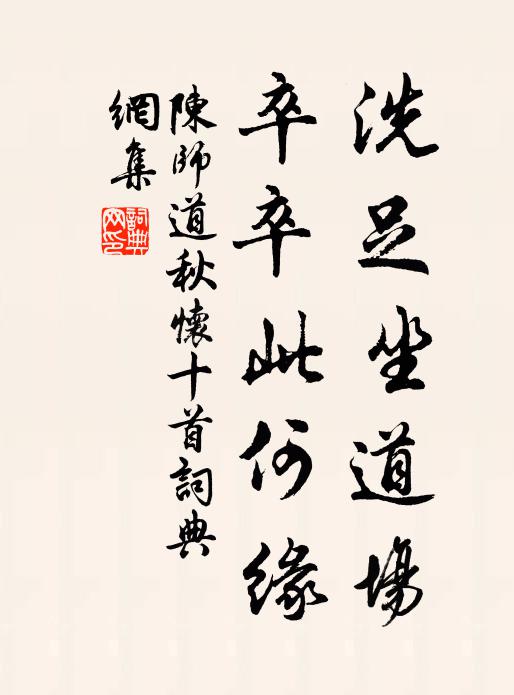 洗足坐道場
卒卒此何緣
陳師道秋懷十首詞典
網集
詞典
网印